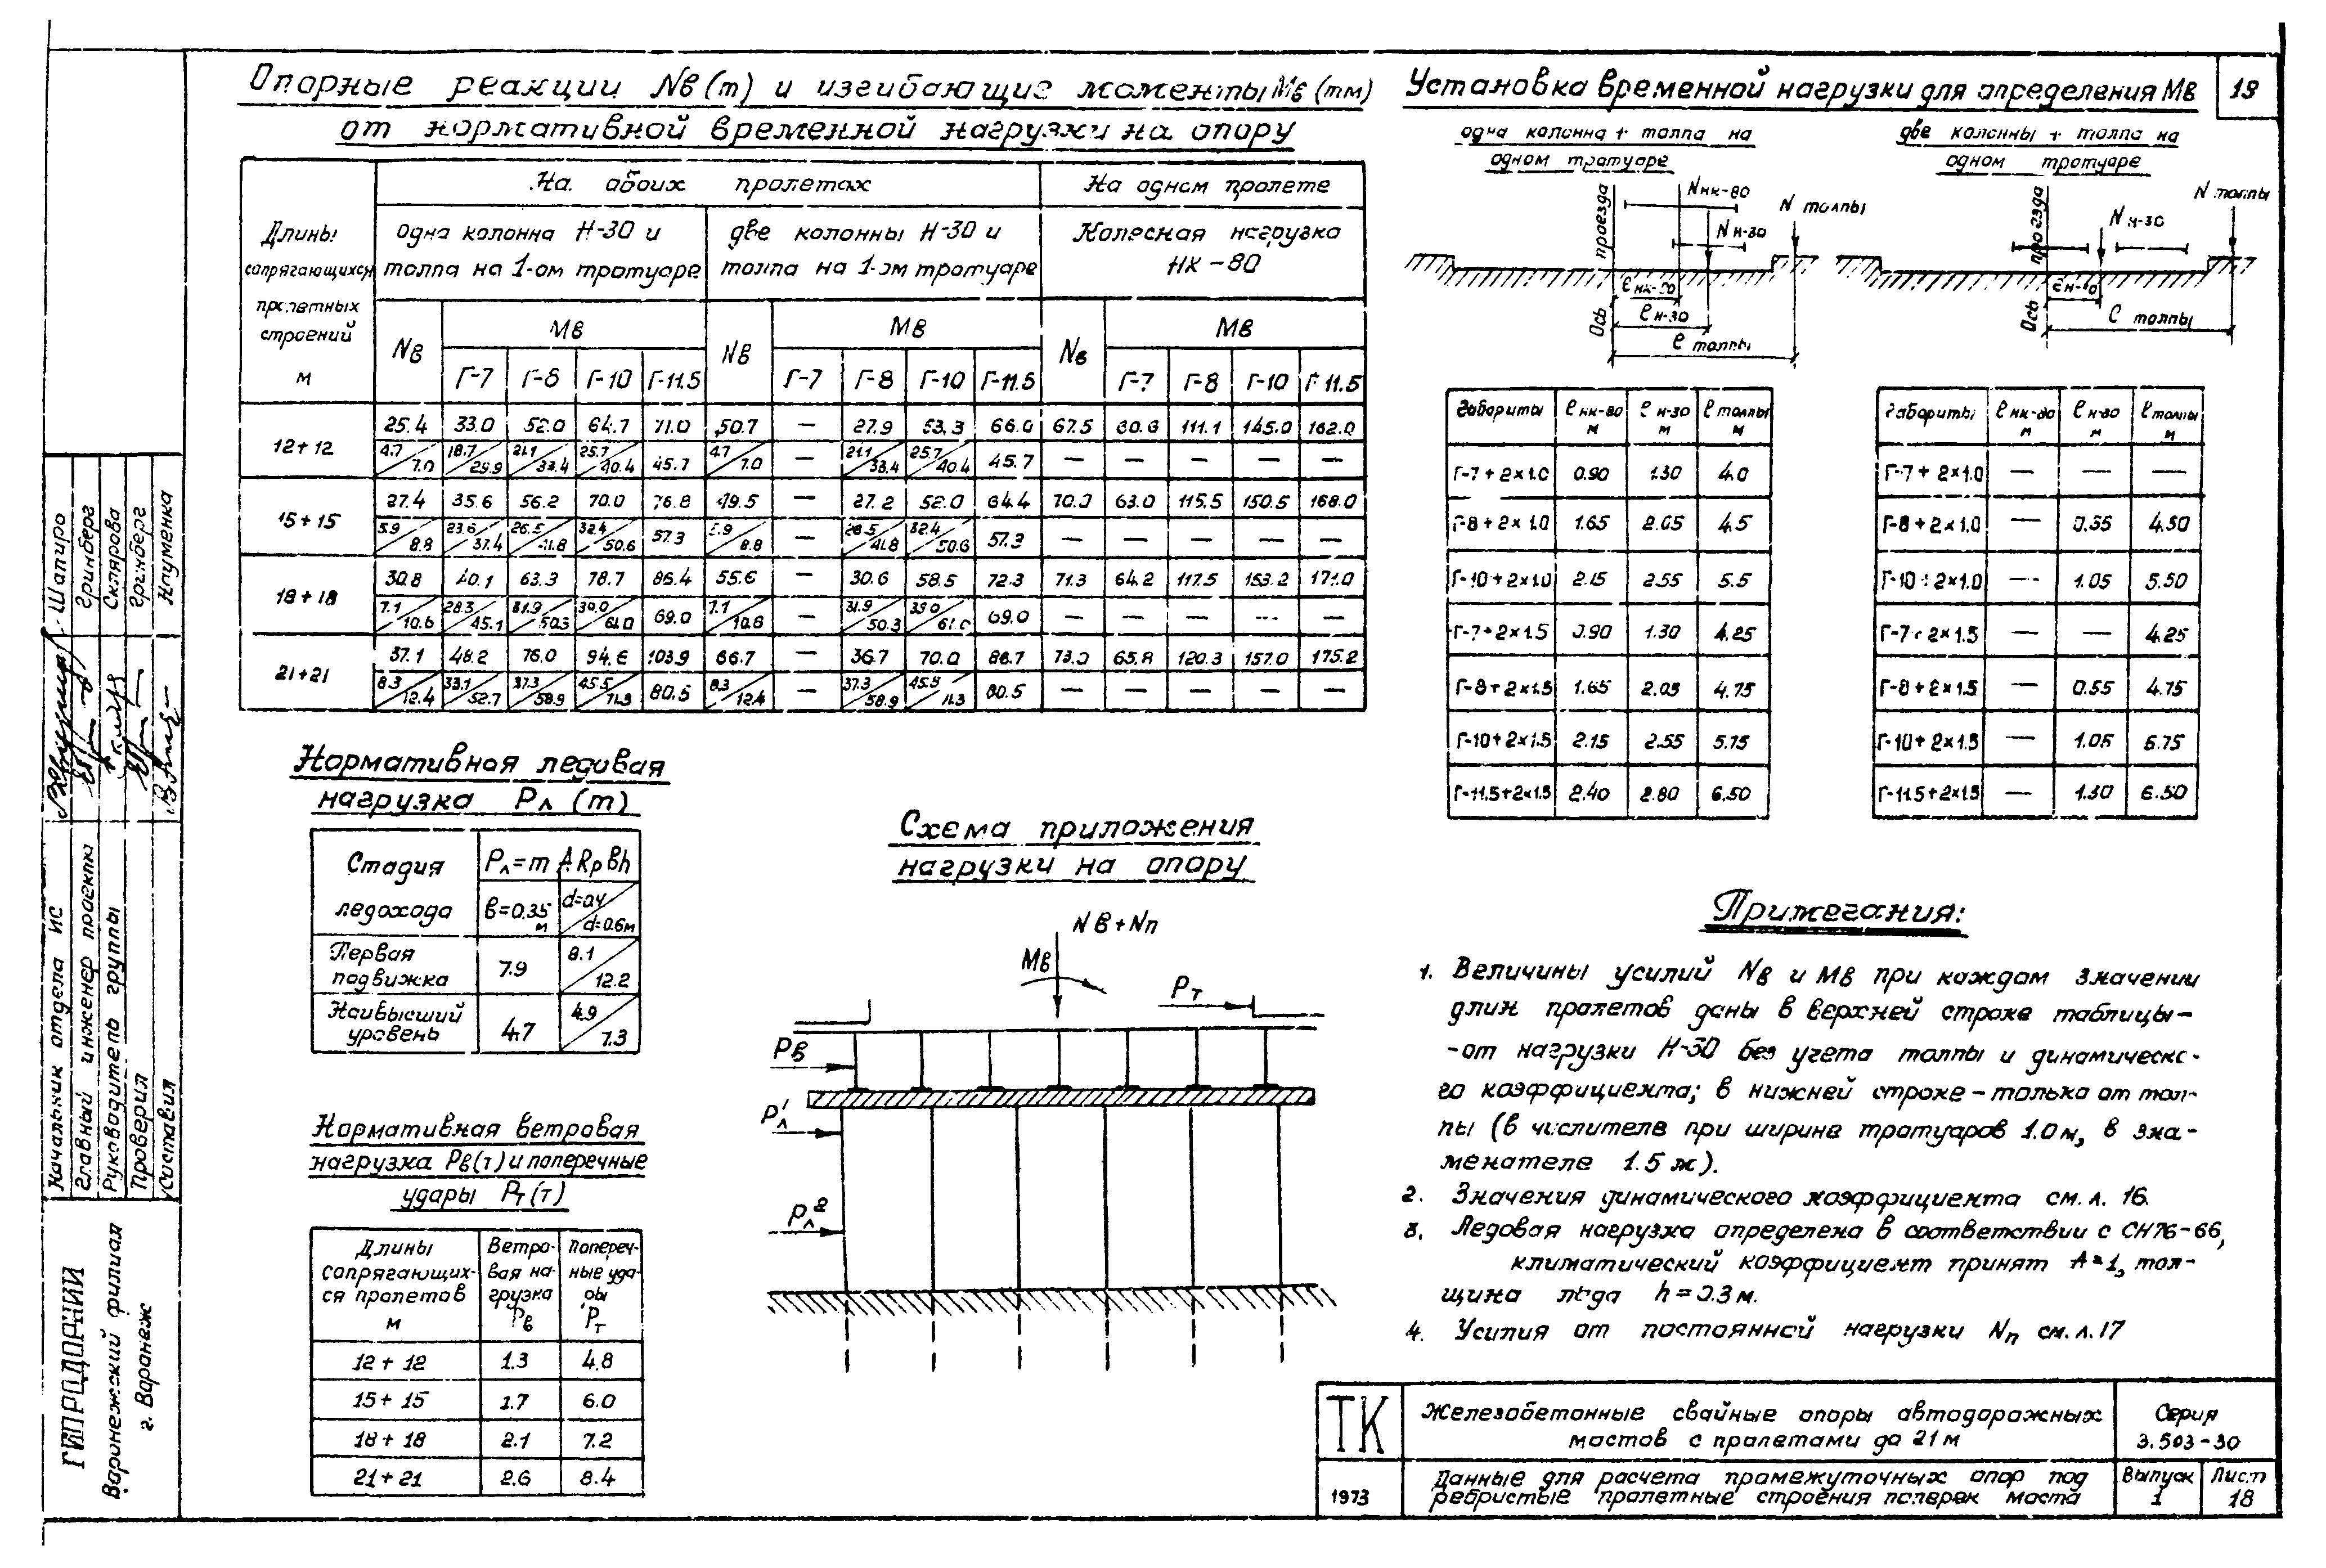 Опорные реакции Nв (т) и изгибающие моменты Мв (тм)
от нормативной временной нагрузки на опору
Длины сопрягающихся пролетных строений м
На обоих пролетах
На одном пролете
одна колонна Н-30 и толпа на 1-ом тротуаре
две колонны Н-30 и толпа на 1-ом тротуаре
Колесная нагрузка НК-80
Nв Мв Nв Мв Nв Мв
Г-7 Г-8 Г-10 Г-11.5 Г-7 Г-8 Г-10 Г-11.5 Г-7 Г-8 Г-10 Г-11.5
12+12
25.4 33.0 52.0 64.7 71.0 50.7 — 27.9 53.3 66.0 67.5 60.6 111.1 145.0 162.0
4.7/7.0 18.7/29.9 21.1/33.4 25.7/40.4 45.7 4.7/7.0 — 21.1/33.4 25.7/40.4 45.7 — — — — —
15+15
27.4 35.6 56.2 70.0 76.8 49.5 — 27.2 52.0 64.4 70.0 63.0 115.5 150.5 168.0
5.9/8.8 23.6/37.4 26.5/41.8 32.4/50.6 57.3 5.9/8.8 — 26.5/41.8 32.4/50.6 57.3 — — — — —
18+18
30.8 40.1 63.3 78.7 86.4 55.6 — 30.6 58.5 72.3 71.3 64.2 117.5 153.2 171.0
7.1/10.6 28.3/45.1 31.9/50.3 39.0/61.0 69.0 7.1/10.6 — 31.9/50.3 39.0/61.0 69.0 — — — — —
21+21
37.1 48.2 76.0 94.6 103.9 66.7 — 36.7 70.0 86.7 73.0 65.8 120.3 157.0 175.2
8.3/12.4 33.1/52.7 37.3/58.9 45.5/71.3 80.5 8.3/12.4 — 37.3/58.9 45.5/71.3 80.5 — — — — —
Установка временной нагрузки для определения Мв
19
одна колонна + толпа на
одном тротуаре
Nнк-80
N толпы
Nн-30
Ось проезда
eнк-80
eн-30
e толпы
две колонны + толпа на
одном тротуаре
N толпы
Nн-30
Ось проезда
e толпы
Габариты eнк-80 м eн-30 м eтолпы м
Г-7+2×1.0 0.90 1.30 4.0
Г-8+2×1.0 1.65 2.05 4.5
Г-10+2×1.0 2.15 2.55 5.5
Г-7+2×1.5 0.90 1.30 4.25
Г-8+2×1.5 1.65 2.05 4.75
Г-10+2×1.5 2.15 2.55 5.75
Г-11.5+2×1.5 2.40 2.80 6.50
Габариты eнк-80 м eн-30 м eтолпы м
Г-7+2×1.0 — — —
Г-8+2×1.0 — 0.55 4.50
Г-10+2×1.0 — 1.05 5.50
Г-7+2×1.5 — — 4.25
Г-8+2×1.5 — 0.55 4.75
Г-10+2×1.5 — 1.05 5.75
Г-11.5+2×1.5 — 1.30 6.50
Нормативная ледовая
нагрузка Рл (т)
Стадия ледохода
Рл=m A Rр Bh
в=0.35 м
d=0.4/d=0.6м
Первая подвижка 7.9 8.1/12.2
Наивысший уровень 4.7 4.9/7.3
Нормативная ветровая
нагрузка Рв(т) и поперечные
удары Рт(т)
Длины сопрягающих-ся пролетов м
Ветро-вая на-грузка Рв
Попереч-ные уда-ры Рт
12+12 1.3 4.8
15+15 1.7 6.0
18+18 2.1 7.2
21+21 2.6 8.4
Схема приложения
нагрузки на опору
Nв+Nп
Мв
Рт
Рв
Рл¹
Рл²
Примечания:
1. Величины усилий Nв и Мв при каждом значении
длин пролетов даны в верхней строке таблицы-
-от нагрузки Н-30 без учета толпы и динамическо-
го коэффициента; в нижней строке-только от тол-
пы (в числителе при ширине тротуаров 1.0м, в зна-
менателе 1.5 м).
2. Значения динамического коэффициента см. л. 16.
3. Ледовая нагрузка определена в соответствии с СН76-66,
климатический коэффициент принят А=1, тол-
щина льда h=0.3м.
4. Усилия от постоянной нагрузки Nп см. л. 17
ТК
1973
Железобетонные свайные опоры автодорожных
мостов с пролетами до 21 м
Серия
3.503-30
Данные для расчета промежуточных опор под
ребристые пролетные строения поперек моста
Выпуск
1
Лист
18
Начальник отдела ИС Шапиро
Главный инженер проекта Гринберг
Руководитель группы Склярова
Проверил Гринберг
Составил Науменко
ГИПРОДОРНИИ
Воронежский филиал
г. Воронеж